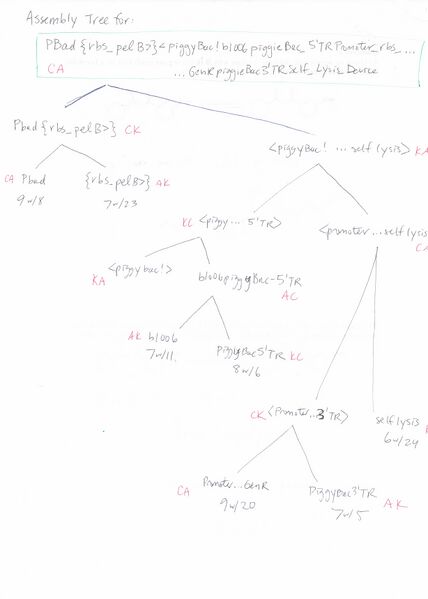 Assembly Tree for:
PBad {rbs_pelB>}<piggyBac! b1006 piggieBac_5'TR Promoter_rbs_...
CA ...GenR piggieBac3'TR Self_Lysis_Device
Pbad {rbs_pelB>} CK
<piggyBac! ... self lysis> KA
CA Pbad {rbs_pelB>} AK
9w/8 7w/23
KC <piggy... 5'TR> <promoter...self lysis
<piggy bac!> b1006 piggyBac-5'TR
KA AC
AK b1006 PiggyBac5'TR KC
7w/11 8w/6
CK <Promoter...3'TR> self lysis
6w/24
CA Promoter...GenR PiggyBac3'TR AK
9w/20 7w/5